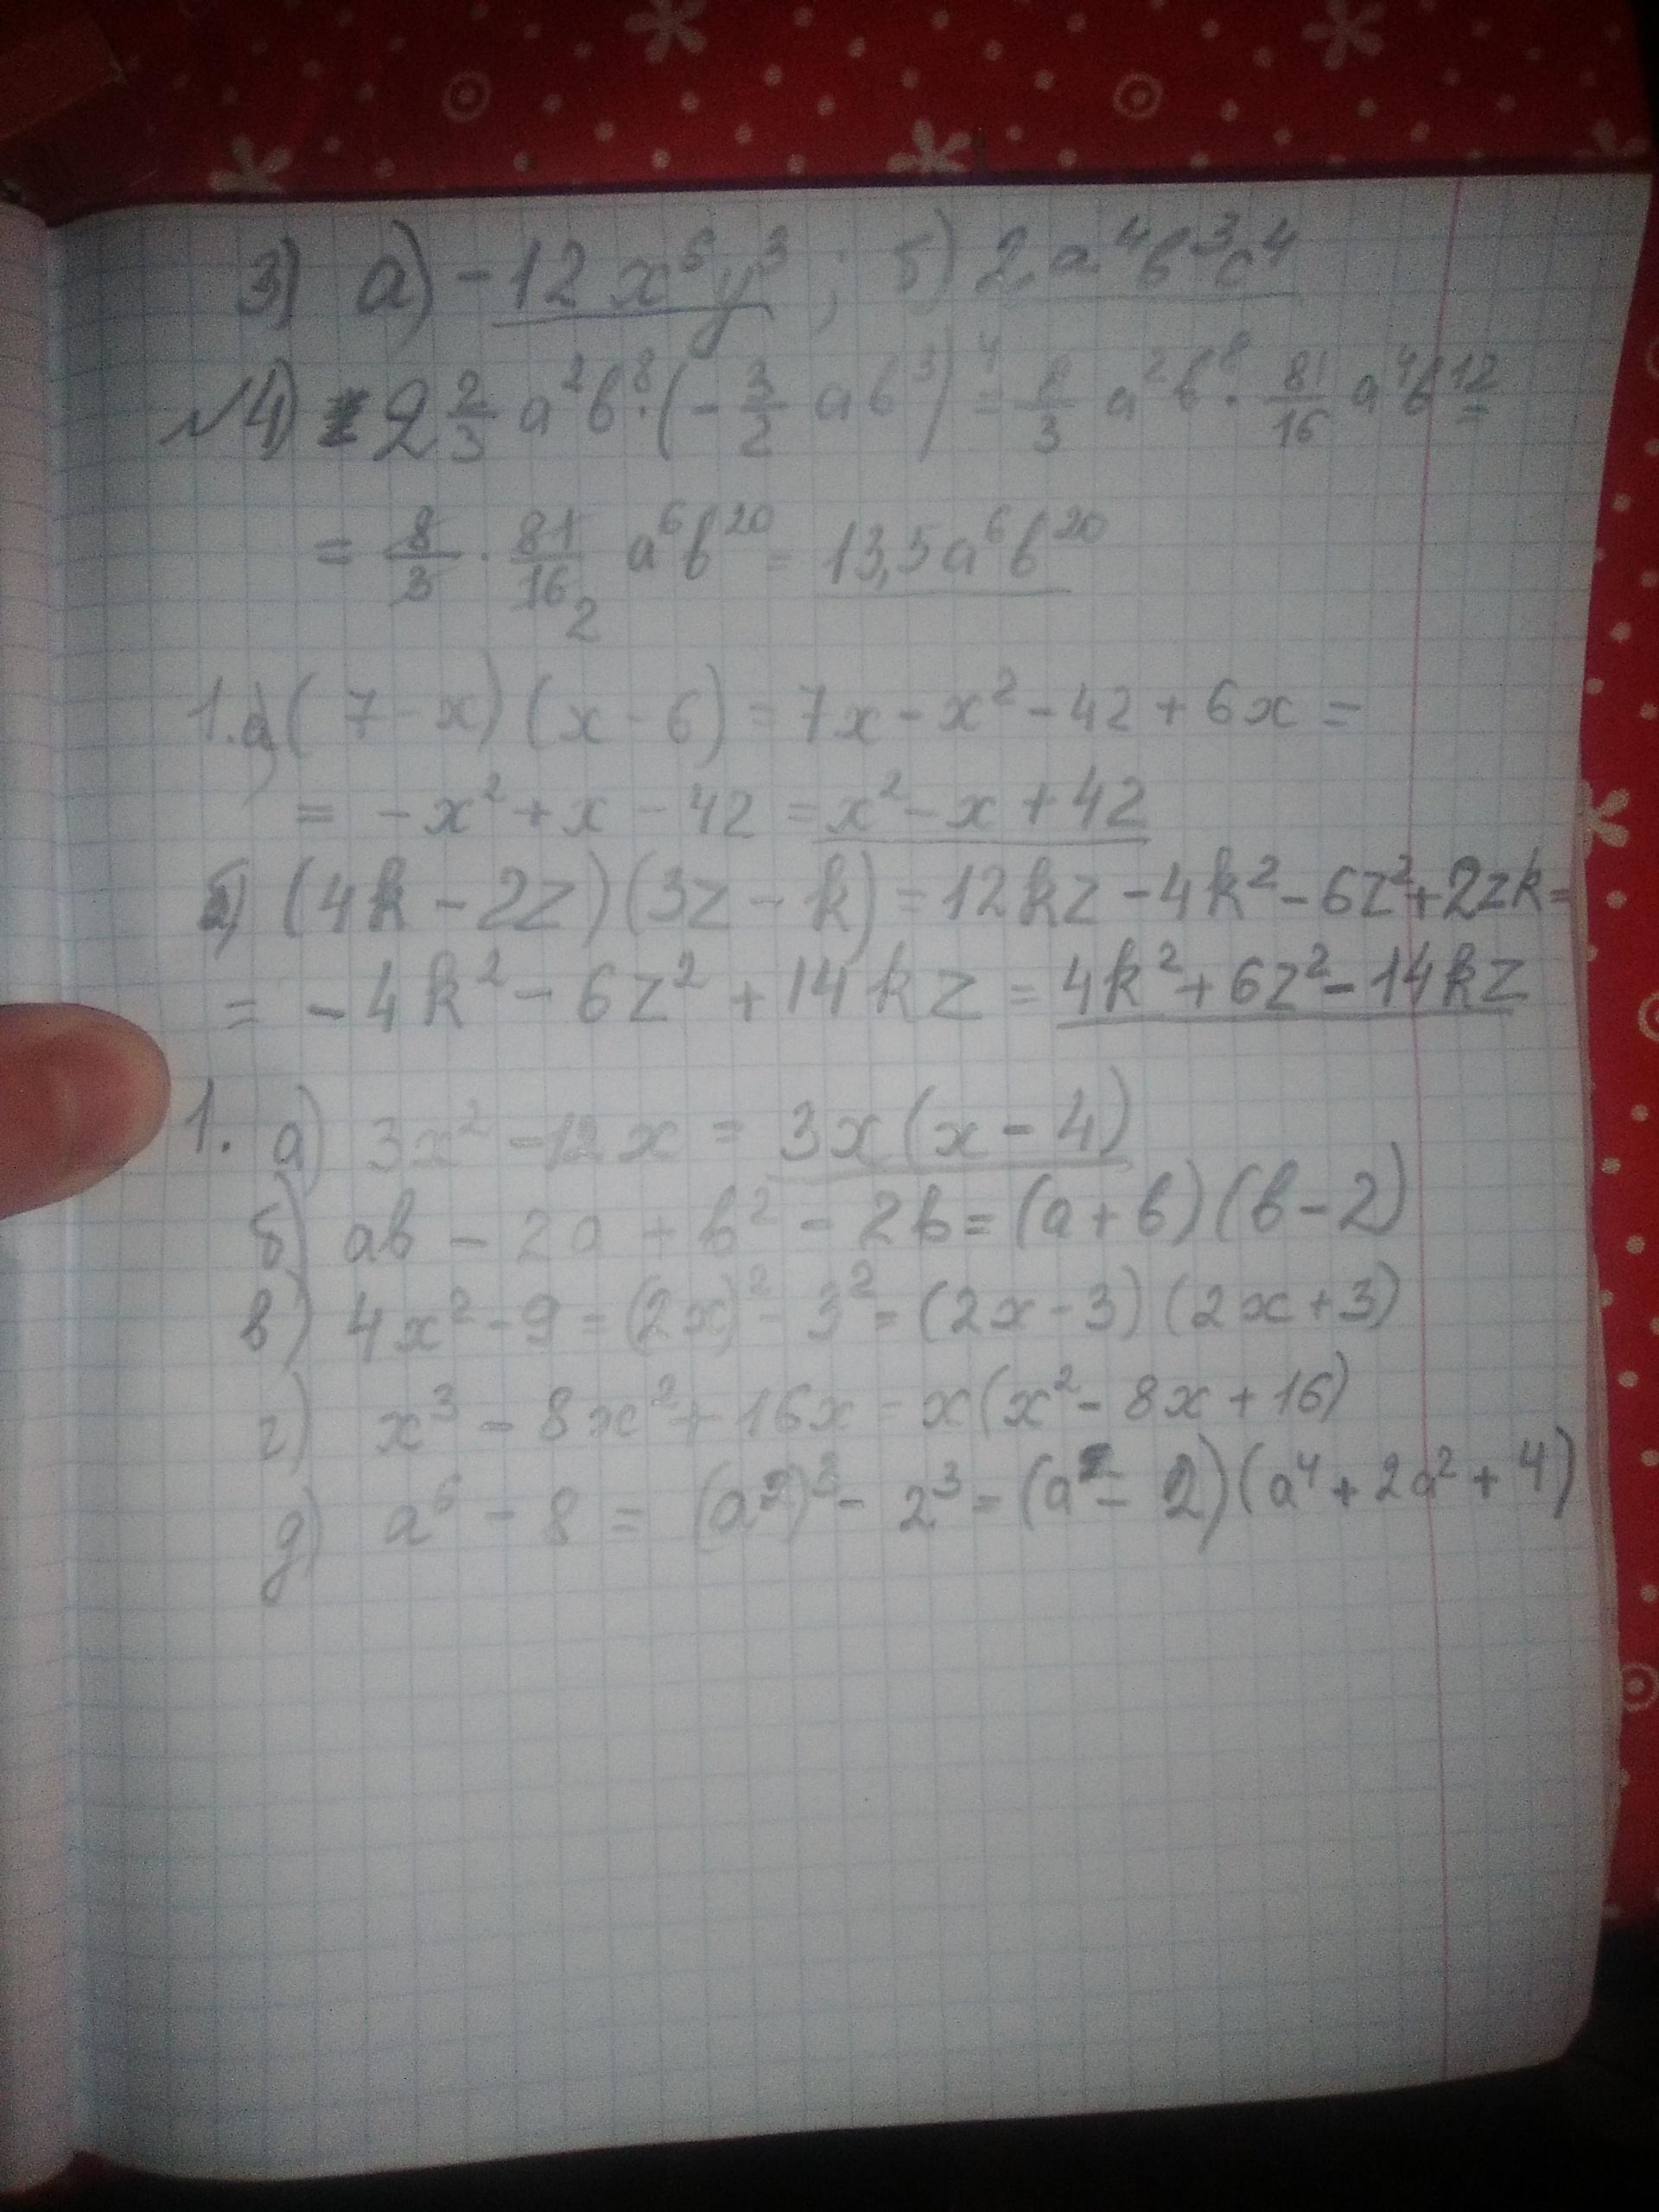 3) а) -12x⁶y³ ; б) 2a⁴b³c⁴
№4) 2 2/3 a²b⁸·(-3/2 ab³)⁴ = 8/3 a²b⁸ · 81/16 a⁴b¹² =
= 8/3 · 81/16 2 a⁶b²⁰ = 13,5a⁶b²⁰
1.а) (7-x)(x-6) = 7x - x² - 42 + 6x =
= -x² + x - 42 = x² - x + 42
б) (4k - 2z)(3z - k) = 12kz - 4k² - 6z² + 2zk =
= -4k² - 6z² + 14kz = 4k² + 6z² - 14kz
1. а) 3x² - 12x = 3x(x - 4)
б) ab - 2a + b² - 2b = (a + b)(b - 2)
в) 4x² - 9 = (2x)² - 3² = (2x - 3)(2x + 3)
г) x³ - 8x² + 16x = x(x² - 8x + 16)
д) a⁶ - 8 = (a²)³ - 2³ = (a² - 2)(a⁴ + 2a² + 4)